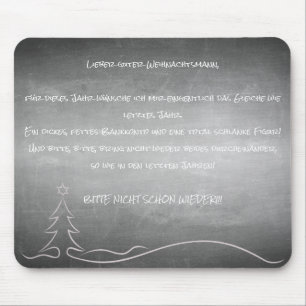 Lieber guter Weihnachtsmann,
für dieses Jahr wünsche ich mir eigentlich das Gleiche wie
letztes Jahr.
Ein dickes, fettes Bankkonto und eine total schlanke Figur!
Und bitte, bitte bring nicht wieder beides durcheinander,
so wie in den letzten Jahren!
BITTE NICHT SCHON WIEDER!!!